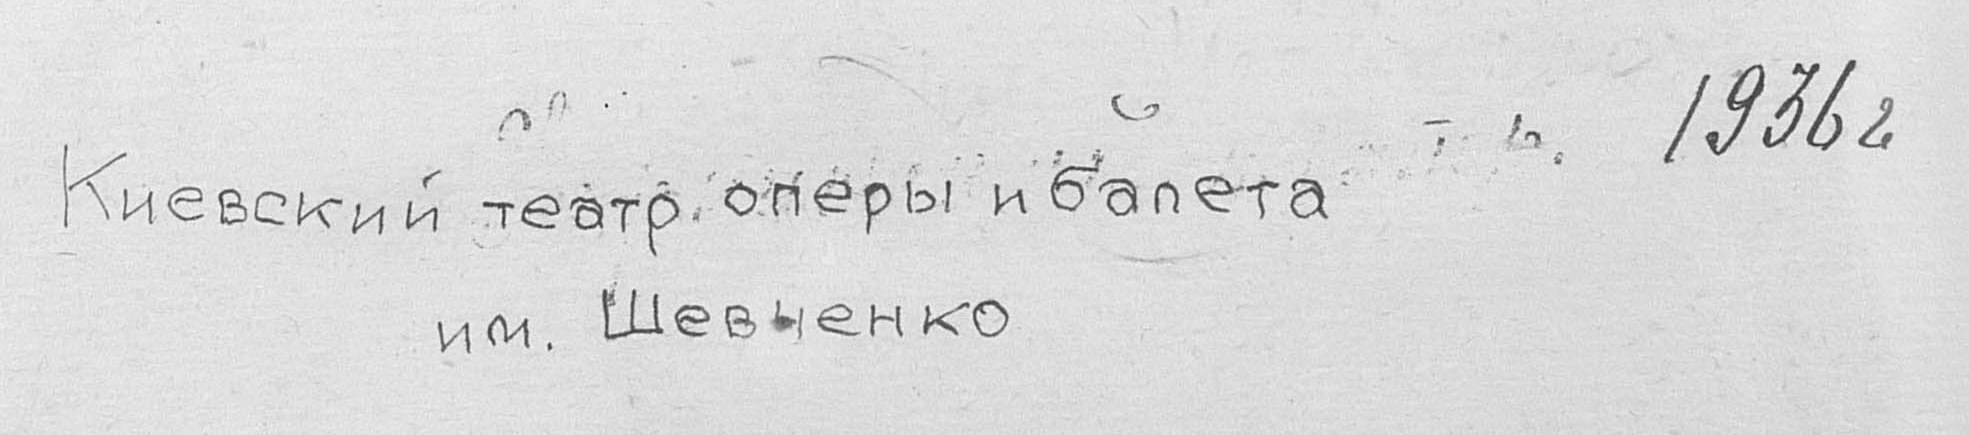 Киевский театр оперы и балета
им. Шевченко
1936 г